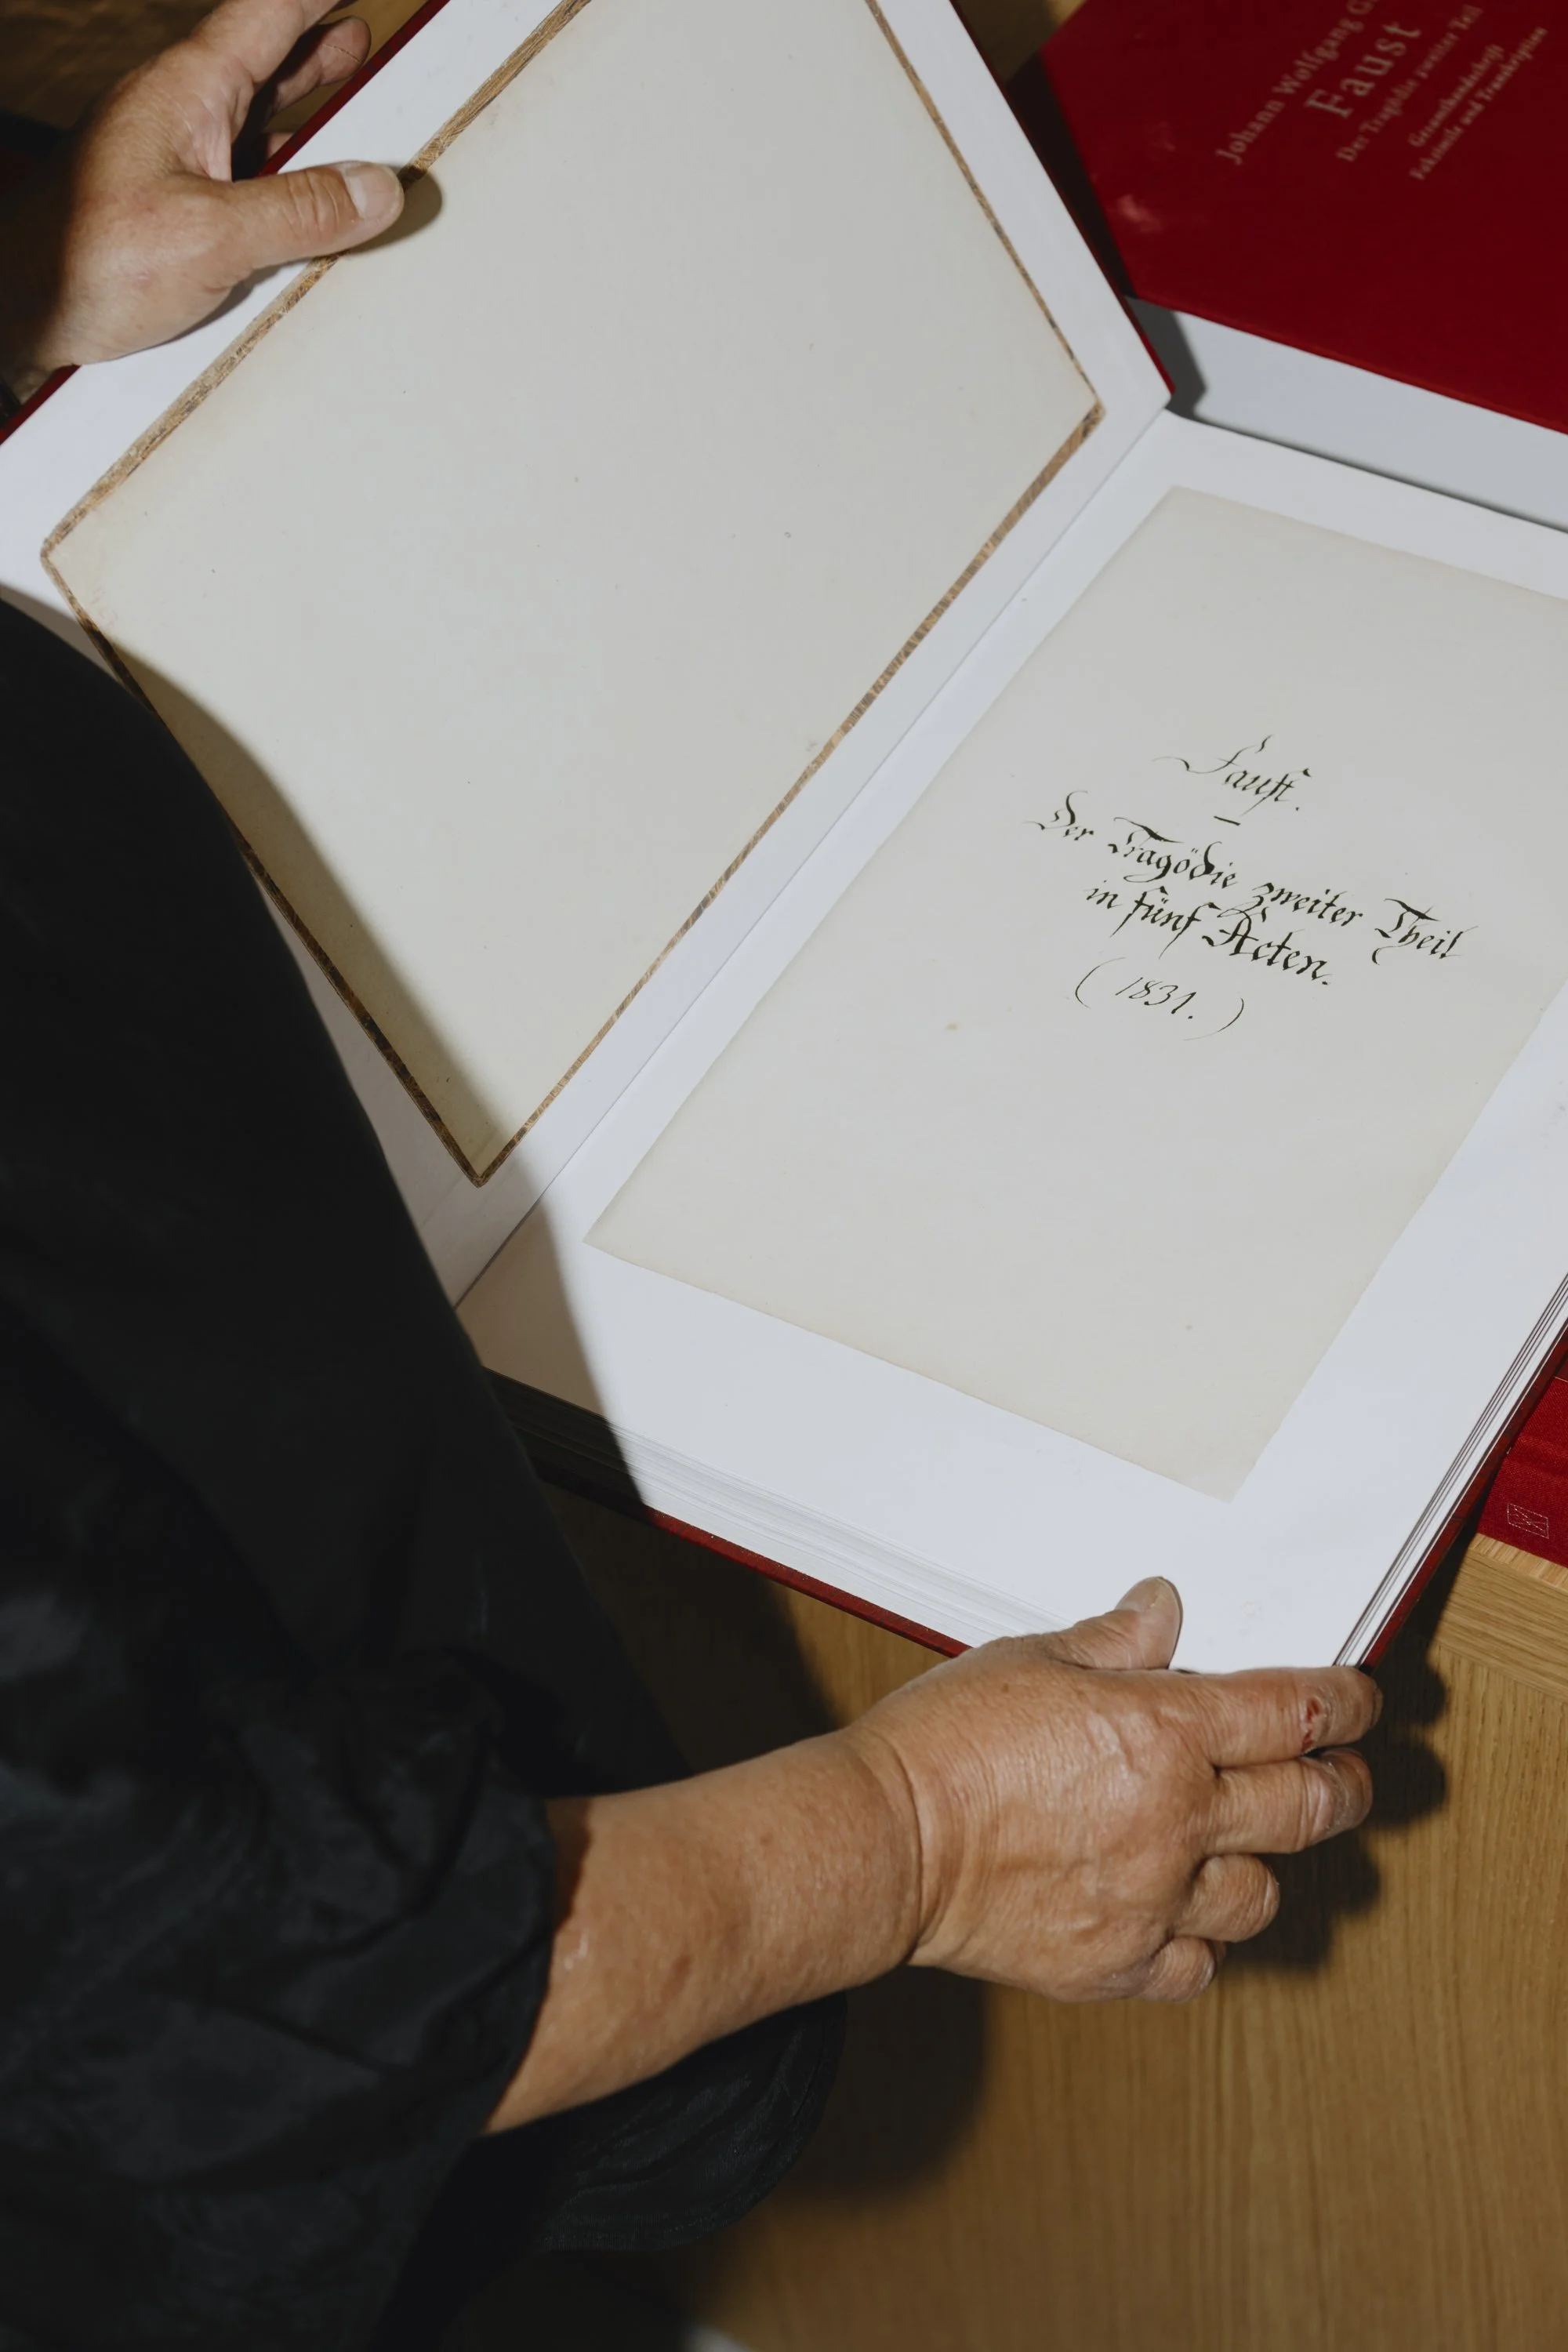 Johann Wolfgang G
Faust
Der Tragödie zweiter Teil
Gesamthandschrift
Faksimile und Transkription
Faust.
–
Der Tragödie zweiter Theil
in fünf Acten.
(1831.)